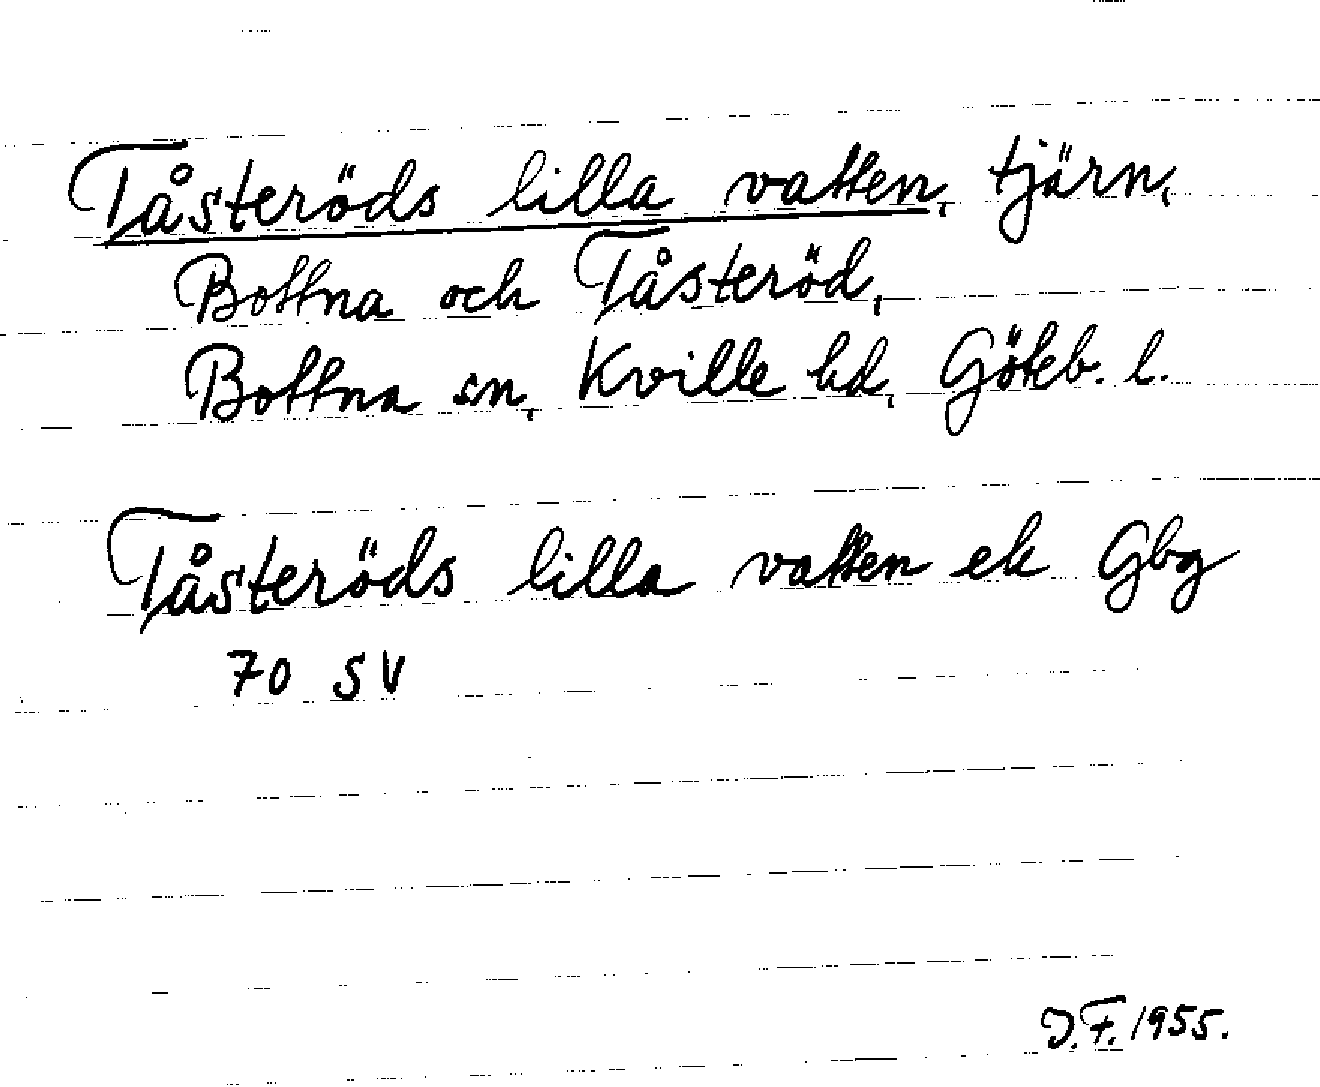 Tåsteröds lilla vatten, tjärn,
Bottna och Tåsteröd,
Bottna sn, Kville hd, Göteb. l.
Tåsteröds lilla vatten ek Gbg
70 SV
D.F. 1955.